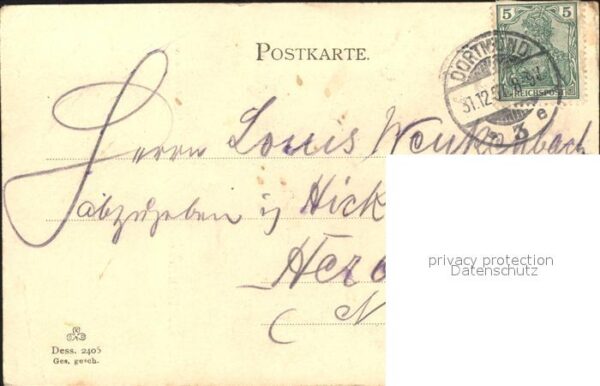 5 5
REICHSPOST
DORTMUND
31.12.
3 e
POSTKARTE.
Herrn Louis
abzugeben in Hick
N
privacy protection
Datenschutz
Dess. 2405
Ges. gesch.